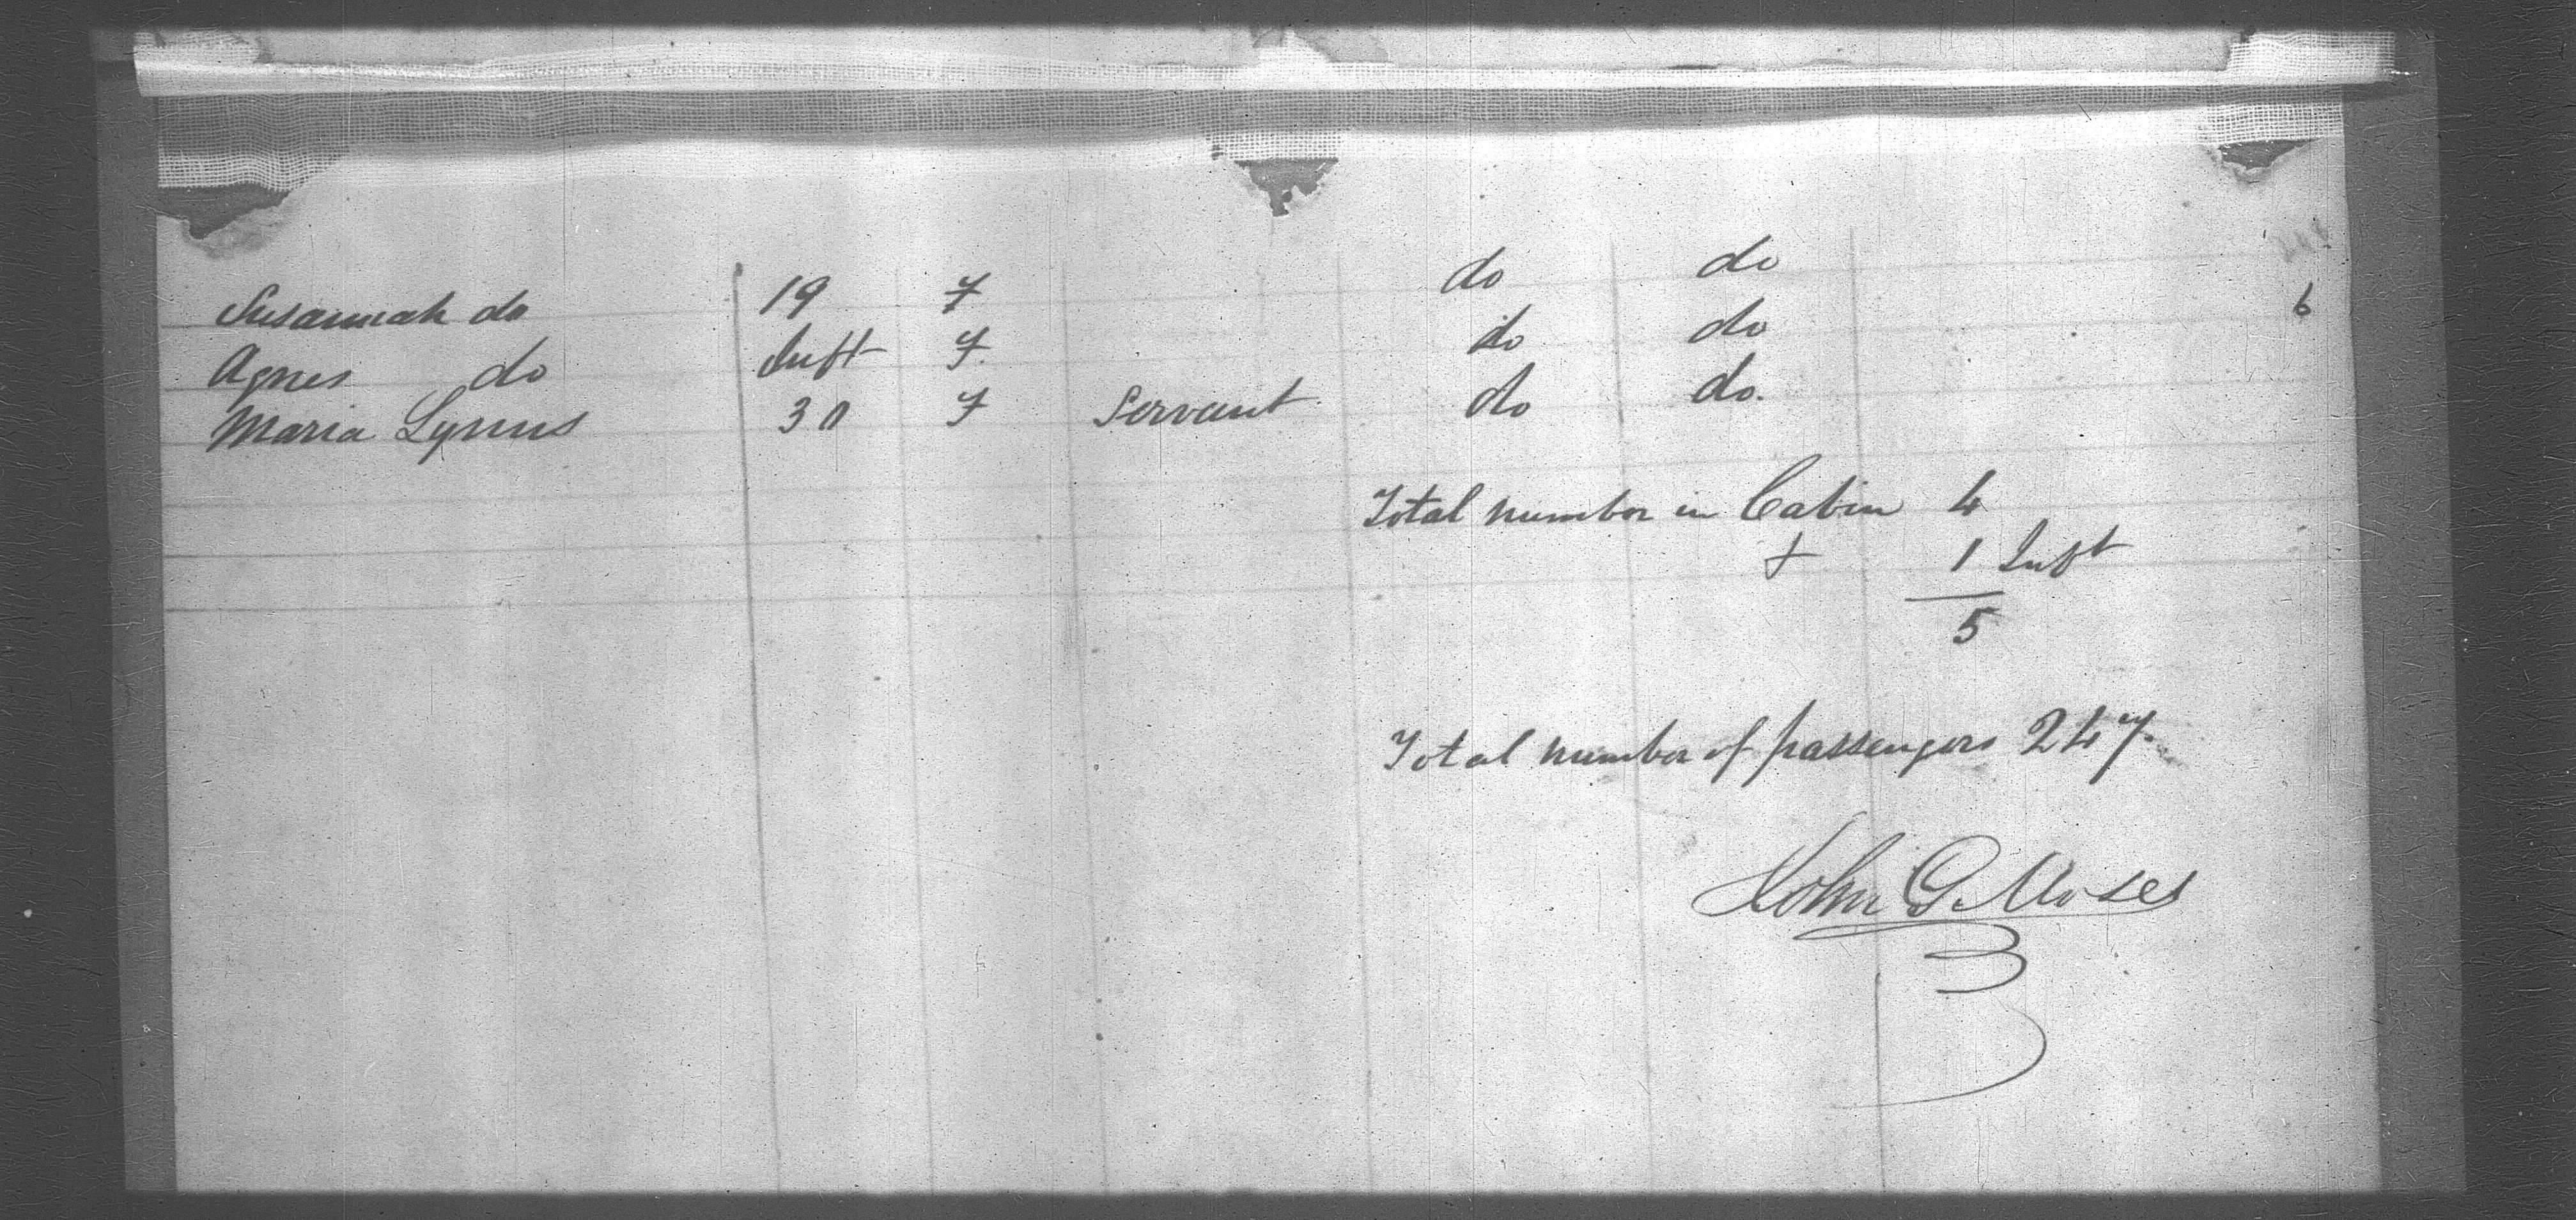 Susannah do 19 F do do
6
Agnes do Inft F. do do
Maria Lynus 30 F Servant do do.
Total number in Cabin 4
+ 1 Inft
5
Total number of passengers 247.
John G. Moses